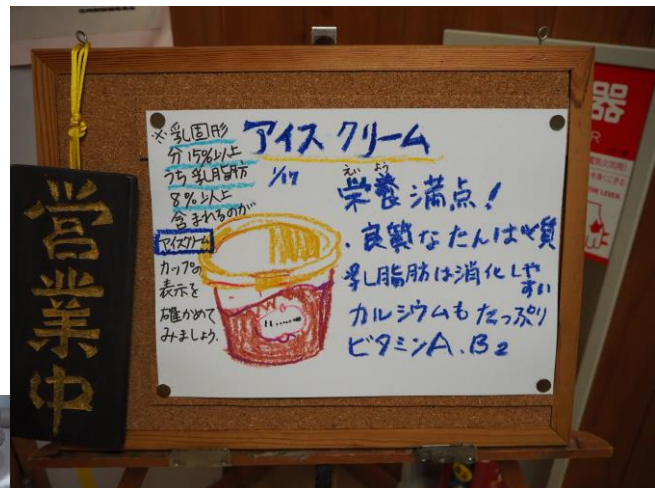 営業中
※乳固形
分15%以上
うち乳脂肪
8%以上
含まれるのが
アイスクリーム
カップの
表示を
確かめて
みましょう.
アイスクリーム
1/17
えいよう
栄養満点!
・良質なたんぱく質
乳脂肪は消化しやすい
カルシウムもたっぷり
ビタミンA、B2
器